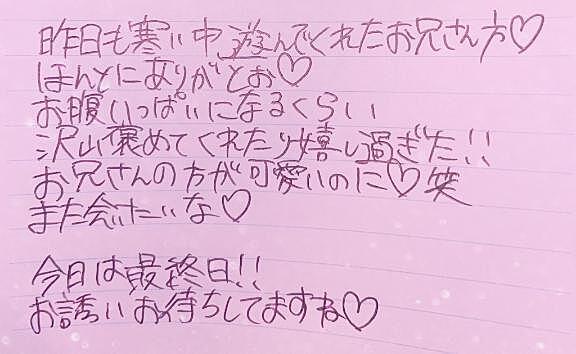 昨日も寒い中遊んでくれたお兄さん方♡
ほんとにありがとお♡
お腹いっぱいになるくらい
沢山褒めてくれたり嬉し過ぎた!!
お兄さんの方が可愛いのに♡笑
また会いたいな♡
今日は最終日!!
お誘いお待ちしてますね♡